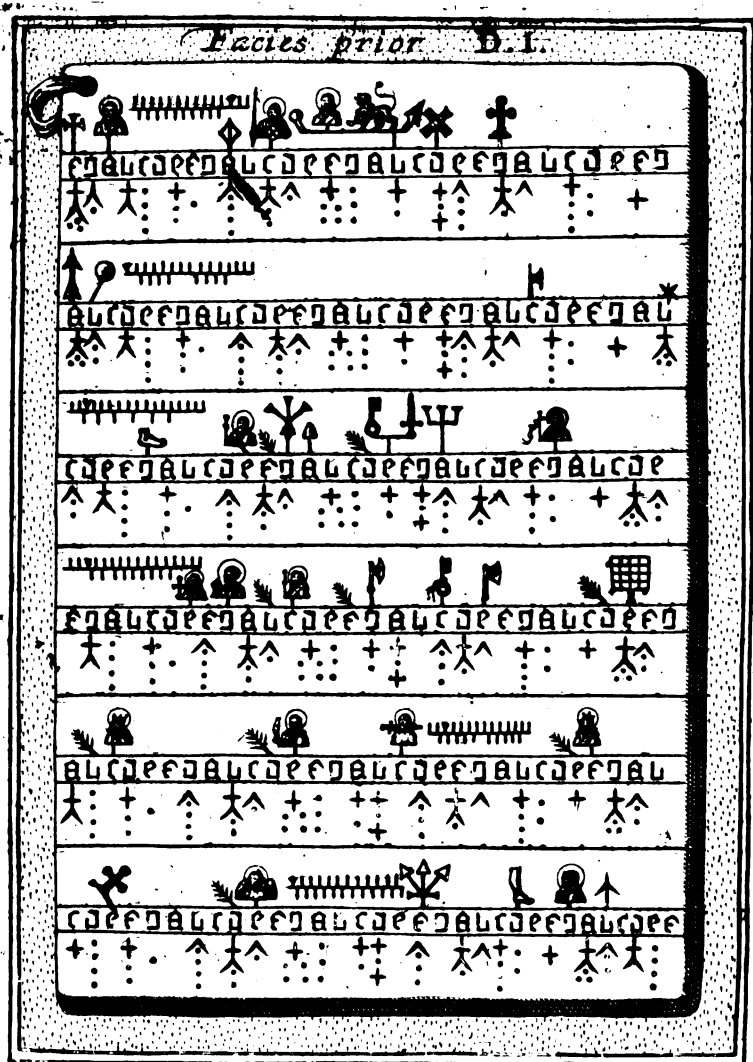 Facies prior D. I.
FGAbCDEFGAbCDEFGAbCDEFGAbCDEFG
AbCDEFGAbCDEFGAbCDEFGAbCDEFGAb
CDEFGAbCDEFGAbCDEFGAbCDEFGAbCDE
FGAbCDEFGAbCDEFGAbCDEFGAbCDEFG
AbCDEFGAbCDEFGAbCDEFGAbCDEFGAb
CDEFGAbCDEFGAbCDEFGAbCDEFGAbCDEF